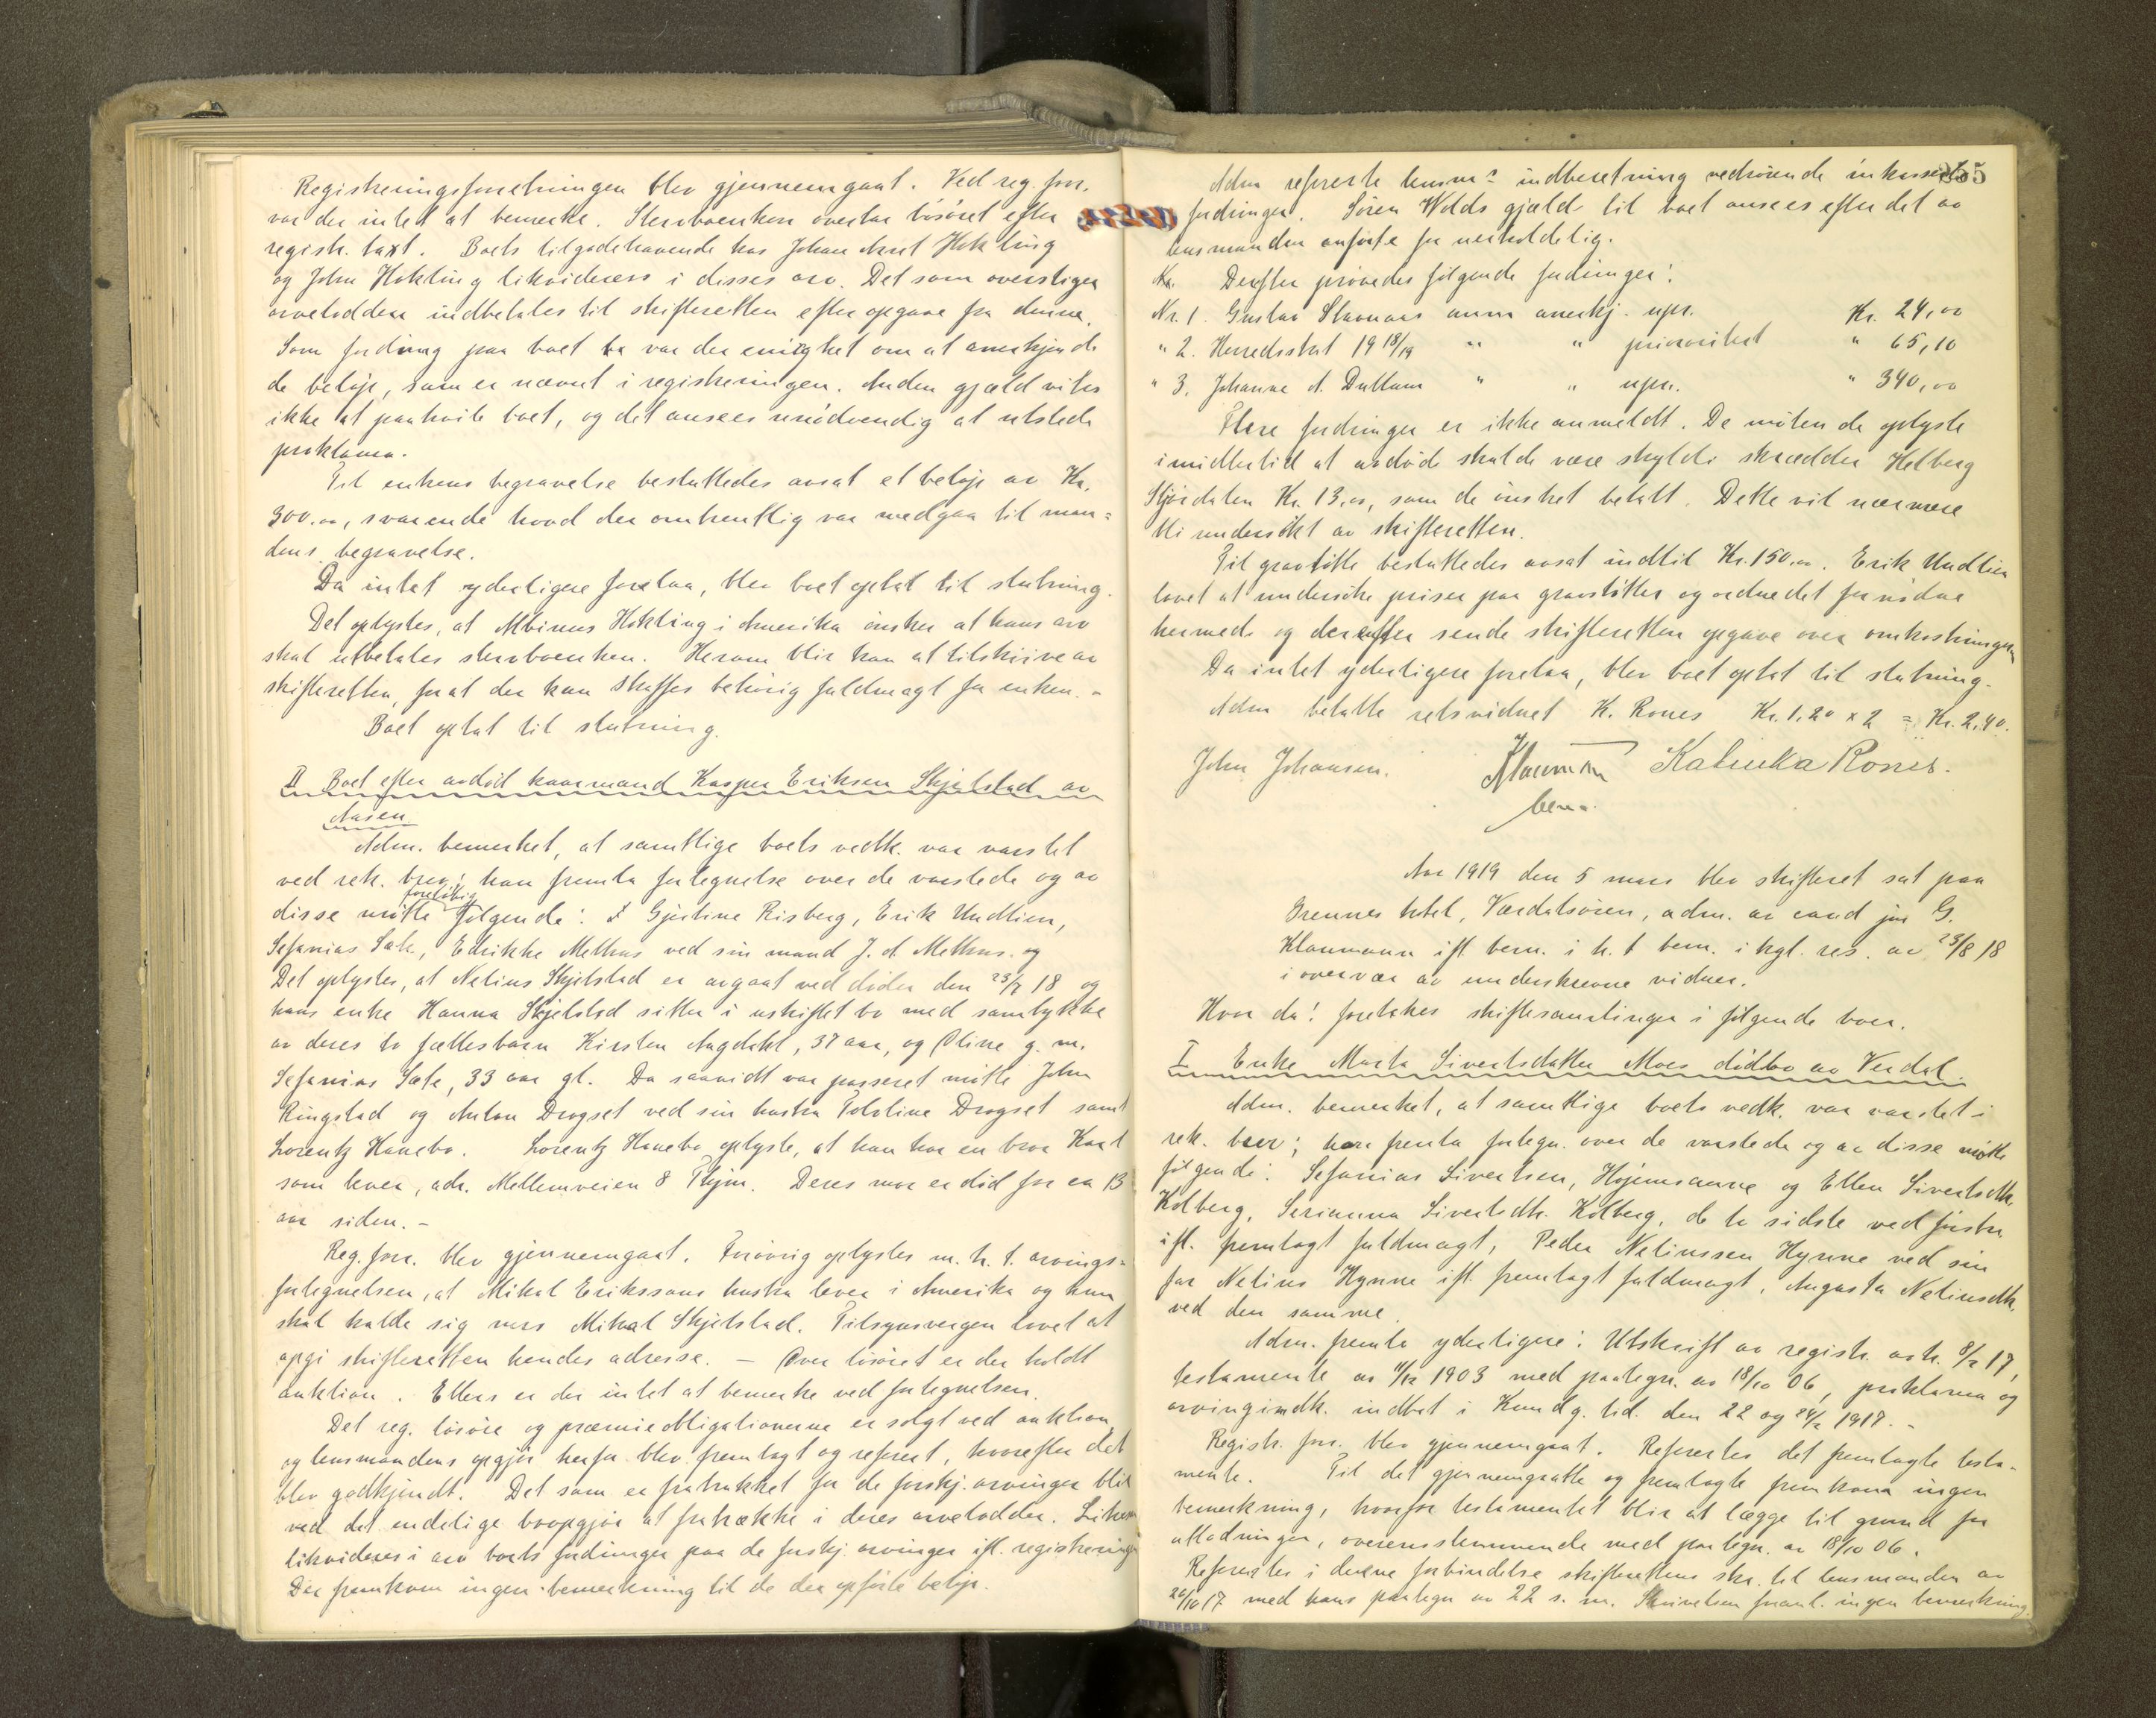 Registreringsforretningen blev gjennemgaat. Ved reg. forr.
var der intet at bemerke. Sterboenken overtar løsøret efter
registr. taxt. Boets tilgodehavende hos Johan Arnt Hokling
og John Hokling likvideres i disses arv. Det som overstiger
arveloddene indbetales til skifteretten efter opgave fra denne.
Som fordring paa boet var der enighet om at anerkjende
de beløp, som er nævnt i registreringen. Anden gjæld vites
ikke at paahvile boet, og det ansees unødvendig at utstede
proklama.
Til enkens begravelse besluttedes avsat et beløp av Kr.
300.00, svarende hvad der omtrentlig var medgaa til man=
dens begravelse.
Da intet yderligere forelaa, blev boet optat til slutning.
Det oplystes, at Albinus Hokling i Amerika ønsker at hans arv
skal utbetales sterboenken. Herom blir han at tilskrive av
skifteretten, forat der kan skaffes behørig fuldmagt for enken. -
Boet optat til slutning.
II Boet efter avdød kaarmand Kasper Eriksen Skjelstad av
Aasen.
Adm. bemerket, at samtlige boets vedk. var varslet
ved rek. brev; han fremla fortegnelse over de varslede og av
disse møtte foreløbig følgende: Gjertine Risberg, Erik Undlien,
Sefanias Sæte, Edrikke Melhus ved sin mand J. A. Melhus. og
Det oplystes, at Nelius Skjelstad er avgaat ved døden den 23/7 18 og
hans enke Hanna Skjelstad sitter i uskiftet bo med samtykke
av deres to fællesbarn Kirsten Aagdahl, 37 aar, og Oline g. m.
Sefanias Sæte, 33 aar gl. Da saavidt var passeret møtte John
Ringstad og Anton Drogset ved sin hustru Petoline Drogset samt
Lorentz Hanebo. Lorentz Hanebo oplyste, at han har en bror Karl
som lever, adr. Mellemveien 8 Thjm. Deres mor er død for ca 13
aar siden. -
Reg. forr. blev gjennemgaat. Forøvrig oplystes m. h. t. arvings=
fortegnelsen, at Mikal Erikssons hustru lever i Amerika og hun
skal kalde sig mrs Mikal Skjelstad. Tilsynsvergen lovet at
opgi skifteretten hendes adresse. — Over løsøret er der holdt
auktion. Ellers er der intet at bemerke ved fortegnelsen.
Det reg. løsøre og præmieobligationerne er solgt ved auktion,
og lensmandens opgjør herfor blev fremlagt og referert, hvorefter det
blev godkjendt. Det som er fratrukket for de forskj. arvinger blir
ved det endelige boopgjør at fratrække i deres arvelodder. Likesaa
likvideres i arv boets fordringer paa de forskj. arvinger ifl. registreringen
Der fremkom ingen bemerkning til de der opførte beløp.
355
Adm refererte lensm.s indberetning vedrørende inkasserte
fordringer. Søren Wolds gjæld til boet ansees efter det av
lensmanden anførte for uerholdelig.
Derefter prøvedes følgende fordringer:
Nr. 1. Gustav Stavnaas anm anerkj. upr. Kr. 24,00
" 2. Herredsskat 1918/19 " " prioritert " 65,10
" 3. Johanne A. Dullum " " upr. " 340,00
Flere fordringer er ikke anmeldt. De møtende oplyste
imidlertid at avdøde skulde være skyldi skrædder Helberg
Skjørdalen Kr. 13,00, som de ønsket betalt. Dette vil nærmere
bli undersøkt av skifteretten.
Til gravstøtte besluttedes avsat indtil Kr. 150,00. Erik Undlien
lovet at undersøke priser paa gravstøtter og ordne det fornødne
hermed og derefter sende skifteretten opgave over omkostningen
Da intet yderligere forelaa, blev boet optat til slutning.
Adm betalte retsvidnet K. Rones Kr. 1,20 x 2 = Kr. 2,40.
John Johansen. Klaumann Kalinka Rones.
bem.
Aar 1919 den 5 mars blev skifteret sat paa
Grennes hotel, Værdalsøren, adm. av cand jur G.
Klaumann ifl. bem. i h. t bem. i kgl. res. av 23/8 18
i overvær av underskrevne vidner.
Hvor da! foretokes skiftesamlinger i følgende boer.
I Enke Marta Sivertsdatter Moes dødsbo av Verdal.
Adm. bemerket, at samtlige boets vedk. var varslet i
rek. brev; han fremla fortegn. over de varslede og av disse møtte
følgende: Sefanias Sivertsen, Højemsaune og Ellen Sivertsdtr.
Kolberg, Serianna Sivertsdtr. Kolberg, de to sidste ved første
ifl. fremlagt fuldmagt, Peder Neliussen Hynne ved sin
far Nelius Hynne ifl. fremlagt fuldmagt, Augusta Neliusdtr.
ved den samme.
Adm. fremla yderligere: Utskrift av registr. avh. 8/2 17,
testamente av 11/12 1903 med paategn. av 18/10 06, proklama og
arvingindk. indtat i Kundg. tid. den 22 og 24/2 1917. -
Registr. forr. blev gjennemgaat. Referertes det fremlagte testa-
mente. Til det gjennemgaatte og fremlagte fremkom ingen
bemerkning, hvorfor testamentet blir at lægge til grund for
utlodningen, overensstemmende med paategn. av 18/10 06.
Referertes i denne forbindelse skifterettens skr. til lensmanden av
20/10 17 med hans paategn av 22 s. m. Skrivelsen foranl. ingen bemerkning.